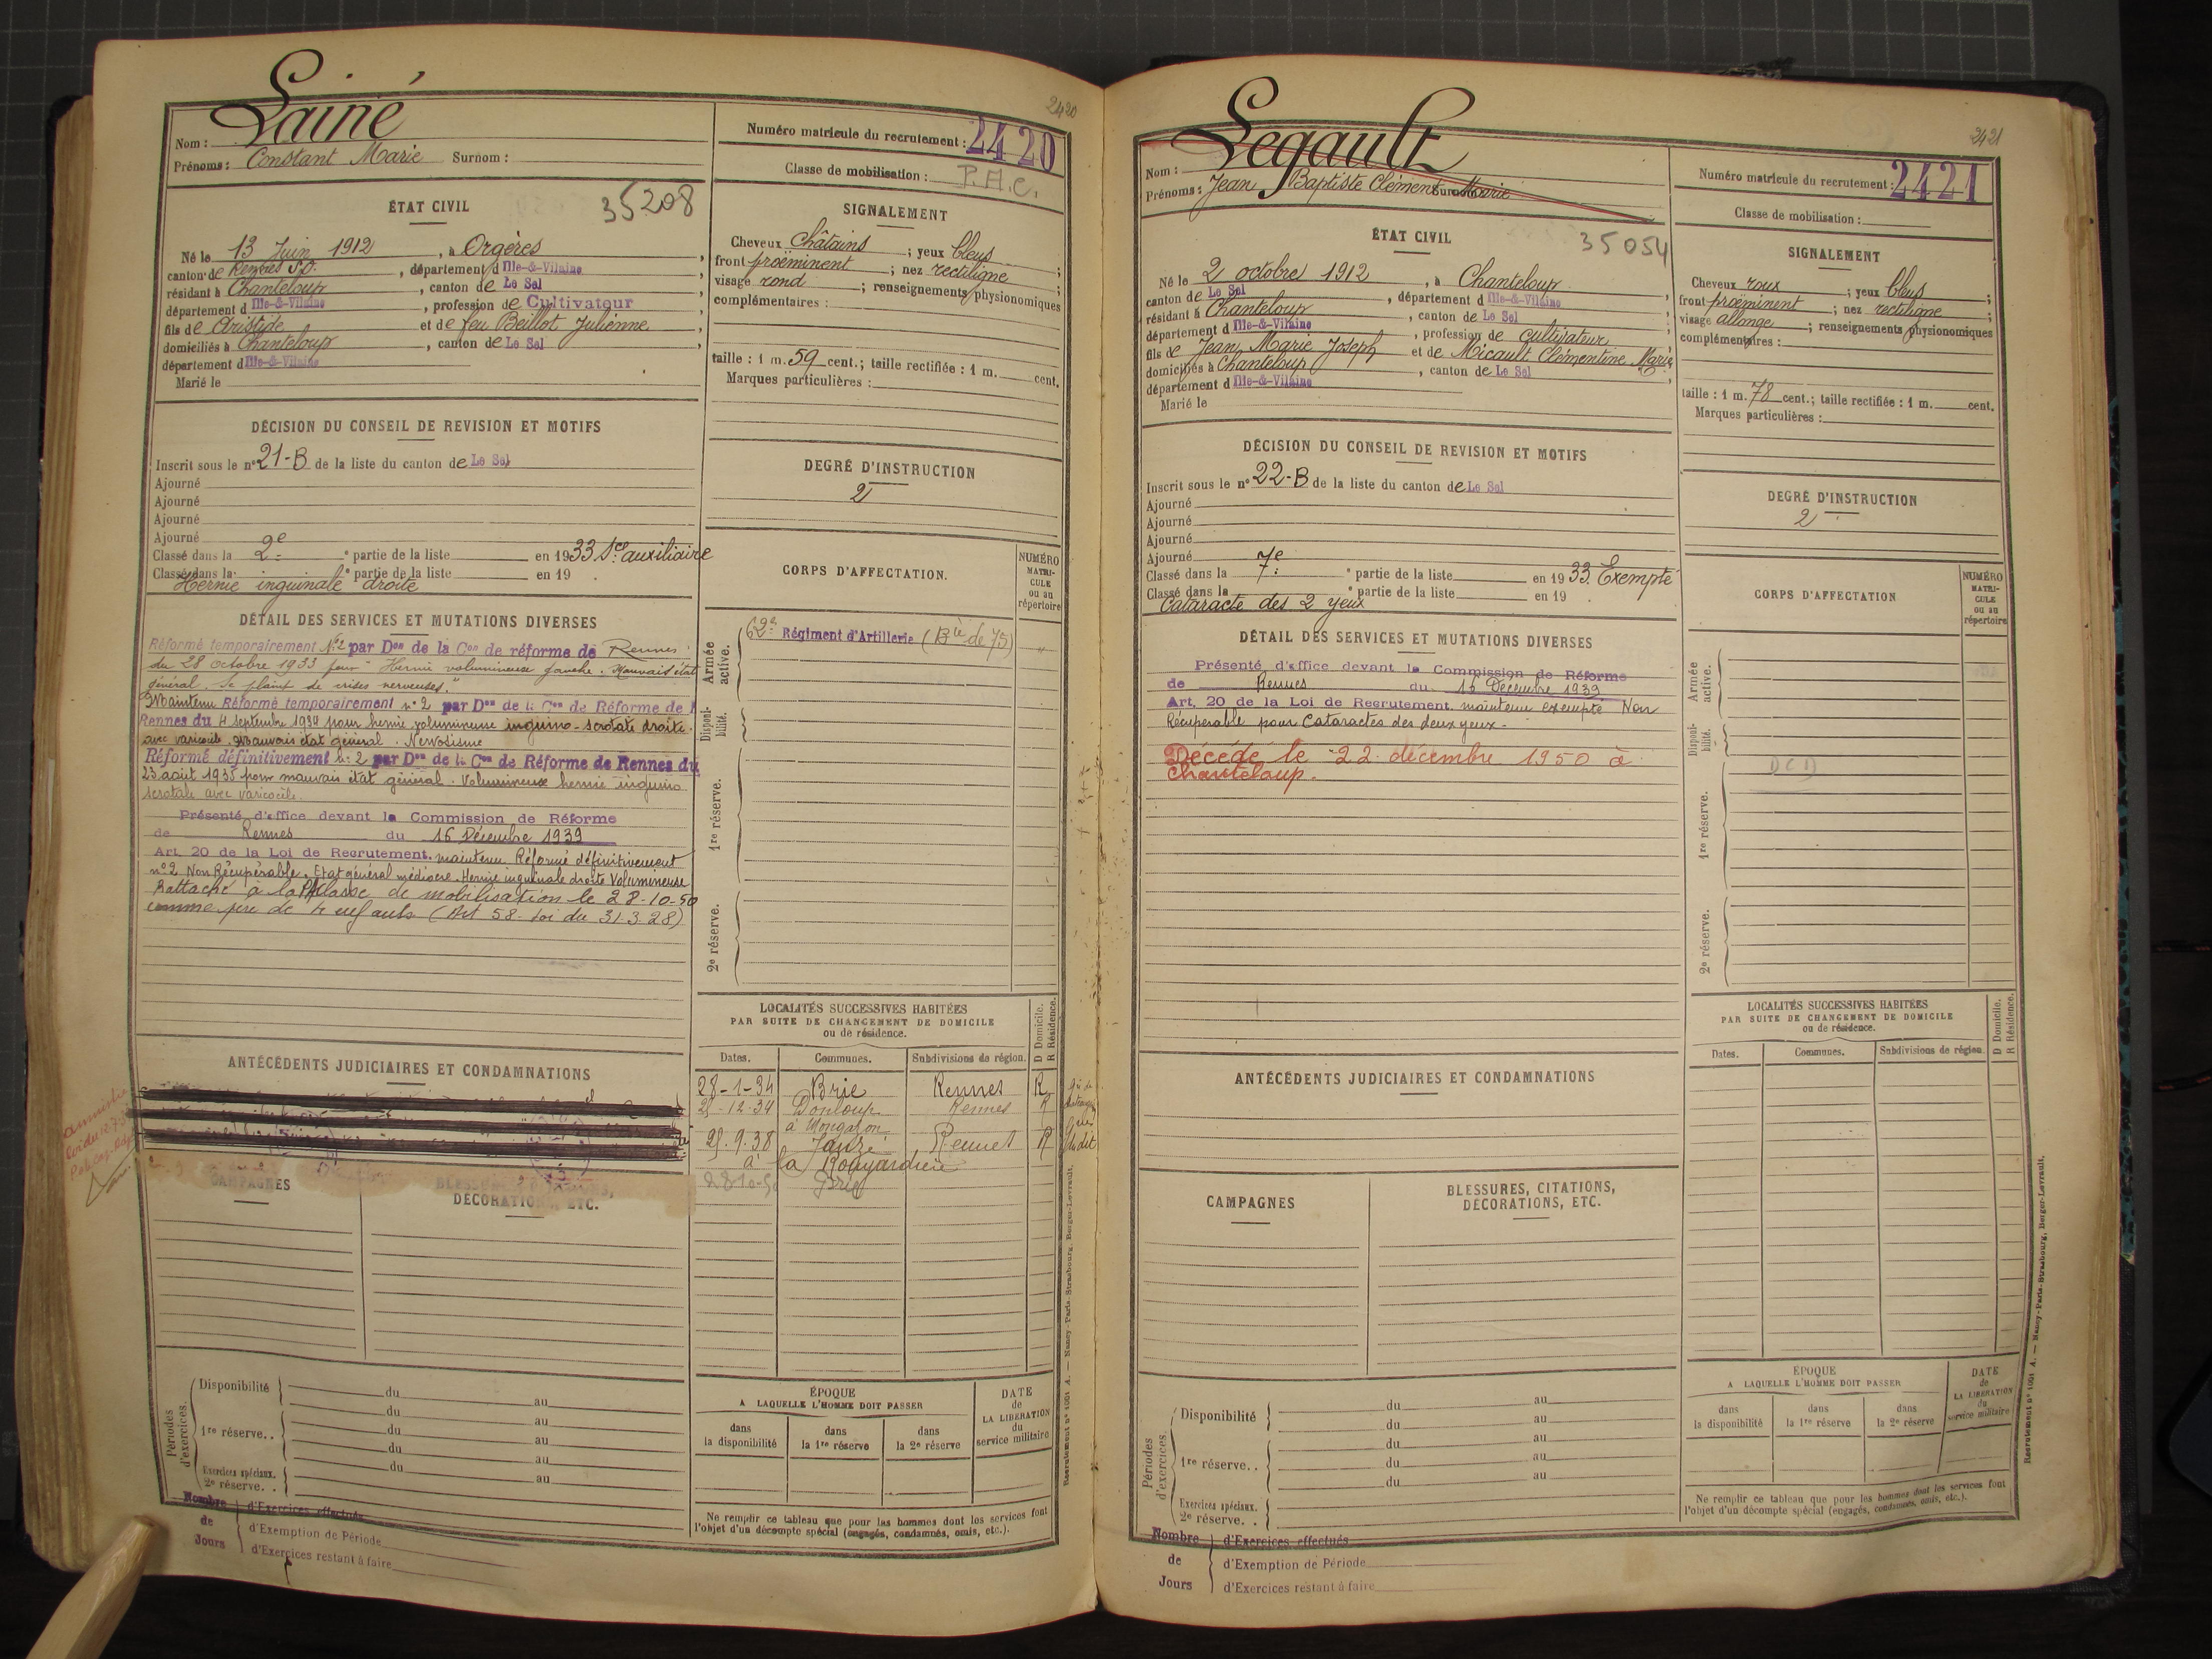 2420
Lainé
Nom :
Prénoms : Constant Marie Surnom :
Numéro matricule du recrutement : 2420
Classe de mobilisation : P.A.C.
ÉTAT CIVIL
35208
Né le 13 Juin 1912, à Orgères,
canton de Rennes S.O., département d Ille-&-Vilaine
résidant à Chanteloup, canton de Le Sel
département d Ille-&-Vilaine, profession de Cultivateur
fils de Aristide et de feu Beillot Julienne,
domiciliés à Chanteloup, canton de Le Sel
département d Ille-&-Vilaine
Marié le
SIGNALEMENT
Cheveux Châtains ; yeux bleus ;
front proëminent ; nez rectiligne ;
visage rond ; renseignements physionomiques
complémentaires :
taille : 1 m. 59 cent.; taille rectifiée : 1 m. cent.
Marques particulières :
DÉCISION DU CONSEIL DE REVISION ET MOTIFS
Inscrit sous le n° 21-B de la liste du canton de Le Sel
Ajourné
Ajourné
Ajourné
Ajourné
Classé dans la 2e ° partie de la liste en 1933 Sce auxiliaire
Classé dans la ° partie de la liste en 19 .
Hernie inguinale droite
DEGRÉ D'INSTRUCTION
2
DÉTAIL DES SERVICES ET MUTATIONS DIVERSES
Réformé temporairement N°2 par Don de la Con de réforme de Rennes
du 28 octobre 1933 pour "Hernie volumineuse gauche. Mauvais état
général. Se plaint de crises nerveuses."
Maintenu Réformé temporairement n°2 par Don de la Con de Réforme de
Rennes du 4 Septembre 1934 pour hernie volumineuse inguino-scrotale droite
avec varicocèle. Mauvais état général. Nervosisme
Réformé définitivement n°2 par Don de la Con de Réforme de Rennes du
23 août 1935 pour mauvais état général. Volumineuse hernie inguino
scrotale avec varicocèle.
Présenté d'office devant la Commission de Réforme
de Rennes du 16 Décembre 1939
Art. 20 de la Loi de Recrutement. maintenu Réformé définitivement
n°2 Non Récupérable. Etat général médiocre. Hernie inguinale droite Volumineuse
Rattaché à la PAC classe de mobilisation le 28-10-50
comme père de 4 enfants (Art 58 - Loi du 31-3-28)
CORPS D'AFFECTATION.
NUMÉRO MATRICULE ou au répertoire
Armée active.
62e Régiment d'Artillerie (Bie de 75) "
Disponibilité.
1re réserve.
2e réserve.
LOCALITÉS SUCCESSIVES HABITÉES
PAR SUITE DE CHANGEMENT DE DOMICILE
ou de résidence.
D Domicile. R Résidence.
Dates. Communes. Subdivisions de région.
28-1-34 Brie Rennes R
12-34 Donloup Rennes R
à Mongazon
9.38 Janzé Rennes R
à la Rougardière
28-10-50 Brie
ANTÉCÉDENTS JUDICIAIRES ET CONDAMNATIONS
amnistié
CAMPAGNES
BLESSURES, CITATIONS,
DÉCORATIONS, ETC.
Périodes d'exercices.
Disponibilité du au
du au
1re réserve.. du au
du au
Exercices spéciaux. du au
2e réserve. .
Nombre de Jours
d'Exercices effectués
d'Exemption de Période
d'Exercices restant à faire
ÉPOQUE
A LAQUELLE L'HOMME DOIT PASSER
dans la disponibilité
dans la 1re réserve
dans la 2e réserve
DATE de LA LIBÉRATION du service militaire
Ne remplir ce tableau que pour les hommes dont les services font
l'objet d'un décompte spécial (engagés, condamnés, omis, etc.).
Recrutement n° 1001 A. — Nancy-Paris-Strasbourg, Berger-Levrault.
2421
Legault
Nom :
Prénoms : Jean Baptiste Clément Marie
Numéro matricule du recrutement : 2421
Classe de mobilisation :
ÉTAT CIVIL
35054
Né le 2 octobre 1912, à Chanteloup,
canton de Le Sel, département d Ille-&-Vilaine
résidant à Chanteloup, canton de Le Sel
département d Ille-&-Vilaine, profession de cultivateur
fils de Jean Marie Joseph et de Micault Clémentine Marie,
domiciliés à Chanteloup, canton de Le Sel
département d Ille-&-Vilaine
Marié le
SIGNALEMENT
Cheveux roux ; yeux bleus ;
front proëminent ; nez rectiligne ;
visage allongé ; renseignements physionomiques
complémentaires :
taille : 1 m. 78 cent.; taille rectifiée : 1 m. cent.
Marques particulières :
DÉCISION DU CONSEIL DE REVISION ET MOTIFS
Inscrit sous le n° 22-B de la liste du canton de Le Sel
Ajourné
Ajourné
Ajourné
Ajourné
Classé dans la 7e ° partie de la liste en 1933. Exempté
Classé dans la ° partie de la liste en 19 .
Cataracte des 2 yeux
DEGRÉ D'INSTRUCTION
2
DÉTAIL DES SERVICES ET MUTATIONS DIVERSES
Présenté d'office devant la Commission de Réforme
de Rennes du 16 Décembre 1939
Art. 20 de la Loi de Recrutement. maintenu exempté Non
Récupérable pour Cataractes des deux yeux.
Décédé le 22 décembre 1950 à
Chanteloup.
CORPS D'AFFECTATION
NUMÉRO MATRICULE ou au répertoire
Armée active.
Disponibilité.
DCD
1re réserve.
2e réserve.
LOCALITÉS SUCCESSIVES HABITÉES
PAR SUITE DE CHANGEMENT DE DOMICILE
ou de résidence.
D Domicile. R Résidence.
Dates. Communes. Subdivisions de région.
ANTÉCÉDENTS JUDICIAIRES ET CONDAMNATIONS
CAMPAGNES
BLESSURES, CITATIONS,
DÉCORATIONS, ETC.
Périodes d'exercices.
Disponibilité du au
du au
1re réserve.. du au
du au
du au
Exercices spéciaux.
2e réserve. .
Nombre de Jours
d'Exercices effectués
d'Exemption de Période
d'Exercices restant à faire
ÉPOQUE
A LAQUELLE L'HOMME DOIT PASSER
dans la disponibilité
dans la 1re réserve
dans la 2e réserve
DATE de LA LIBÉRATION du service militaire
Ne remplir ce tableau que pour les hommes dont les services font
l'objet d'un décompte spécial (engagés, condamnés, omis, etc.).
Recrutement n° 1001 A. — Nancy-Paris-Strasbourg, Berger-Levrault.